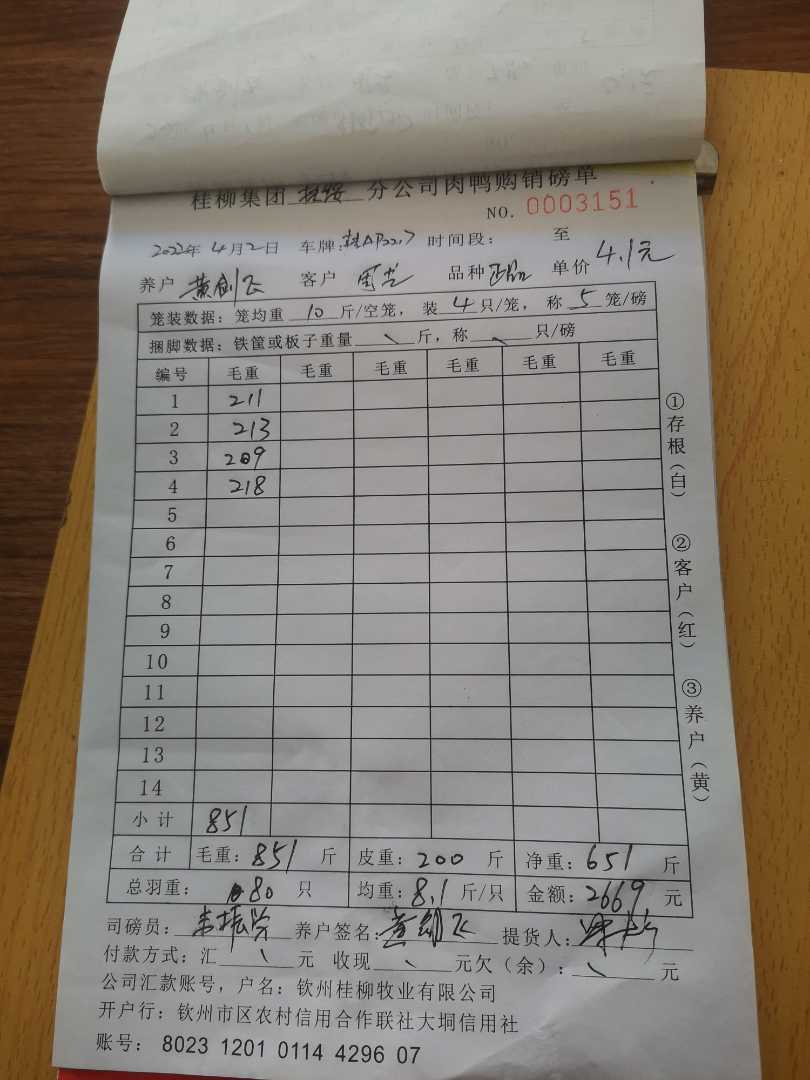 桂柳集团 扶绥 分公司肉鸭购销磅单
NO. 0003151
2022年4月2日 车牌: 时间段: 至
养户 黄剑飞 客户 品种 正品 单价 4.1元
笼装数据: 笼均重 10 斤/空笼, 装 4 只/笼, 称 5 笼/磅
捆脚数据: 铁筐或板子重量 \ 斤, 称 \ 只/磅
编号 毛重 毛重 毛重 毛重 毛重 毛重
1 211
2 213
3 209
4 218
5
6
7
8
9
10
11
12
13
14
小计 851
合计 毛重: 851 斤 皮重: 200 斤 净重: 651 斤
总羽重: 80 只 均重: 8.1 斤/只 金额: 2669 元
司磅员: 养户签名: 黄剑飞 提货人:
付款方式: 汇 \ 元 收现 \ 元欠(余): \ 元
公司汇款账号, 户名: 钦州桂柳牧业有限公司
开户行: 钦州市区农村信用合作联社大垌信用社
账号: 8023 1201 0114 4296 07
①存根(白)
②客户(红)
③养户(黄)